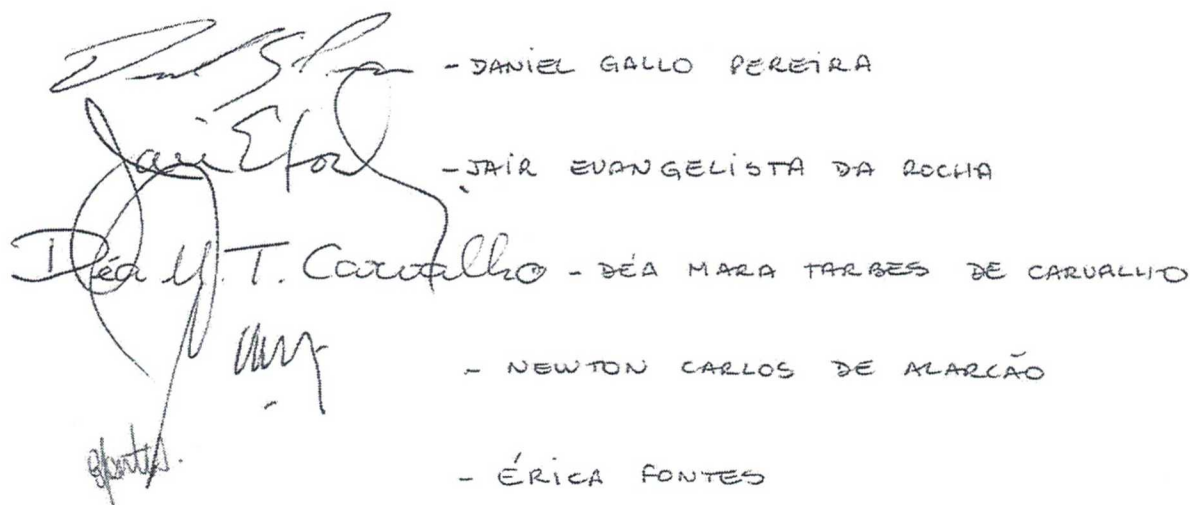 - DANIEL GALLO PEREIRA
- JAIR EVANGELISTA DA ROCHA
Déa M. T. Carvalho - DÉA MARA TARBES DE CARVALHO
- NEWTON CARLOS DE ALARCÃO
- ÉRICA FONTES